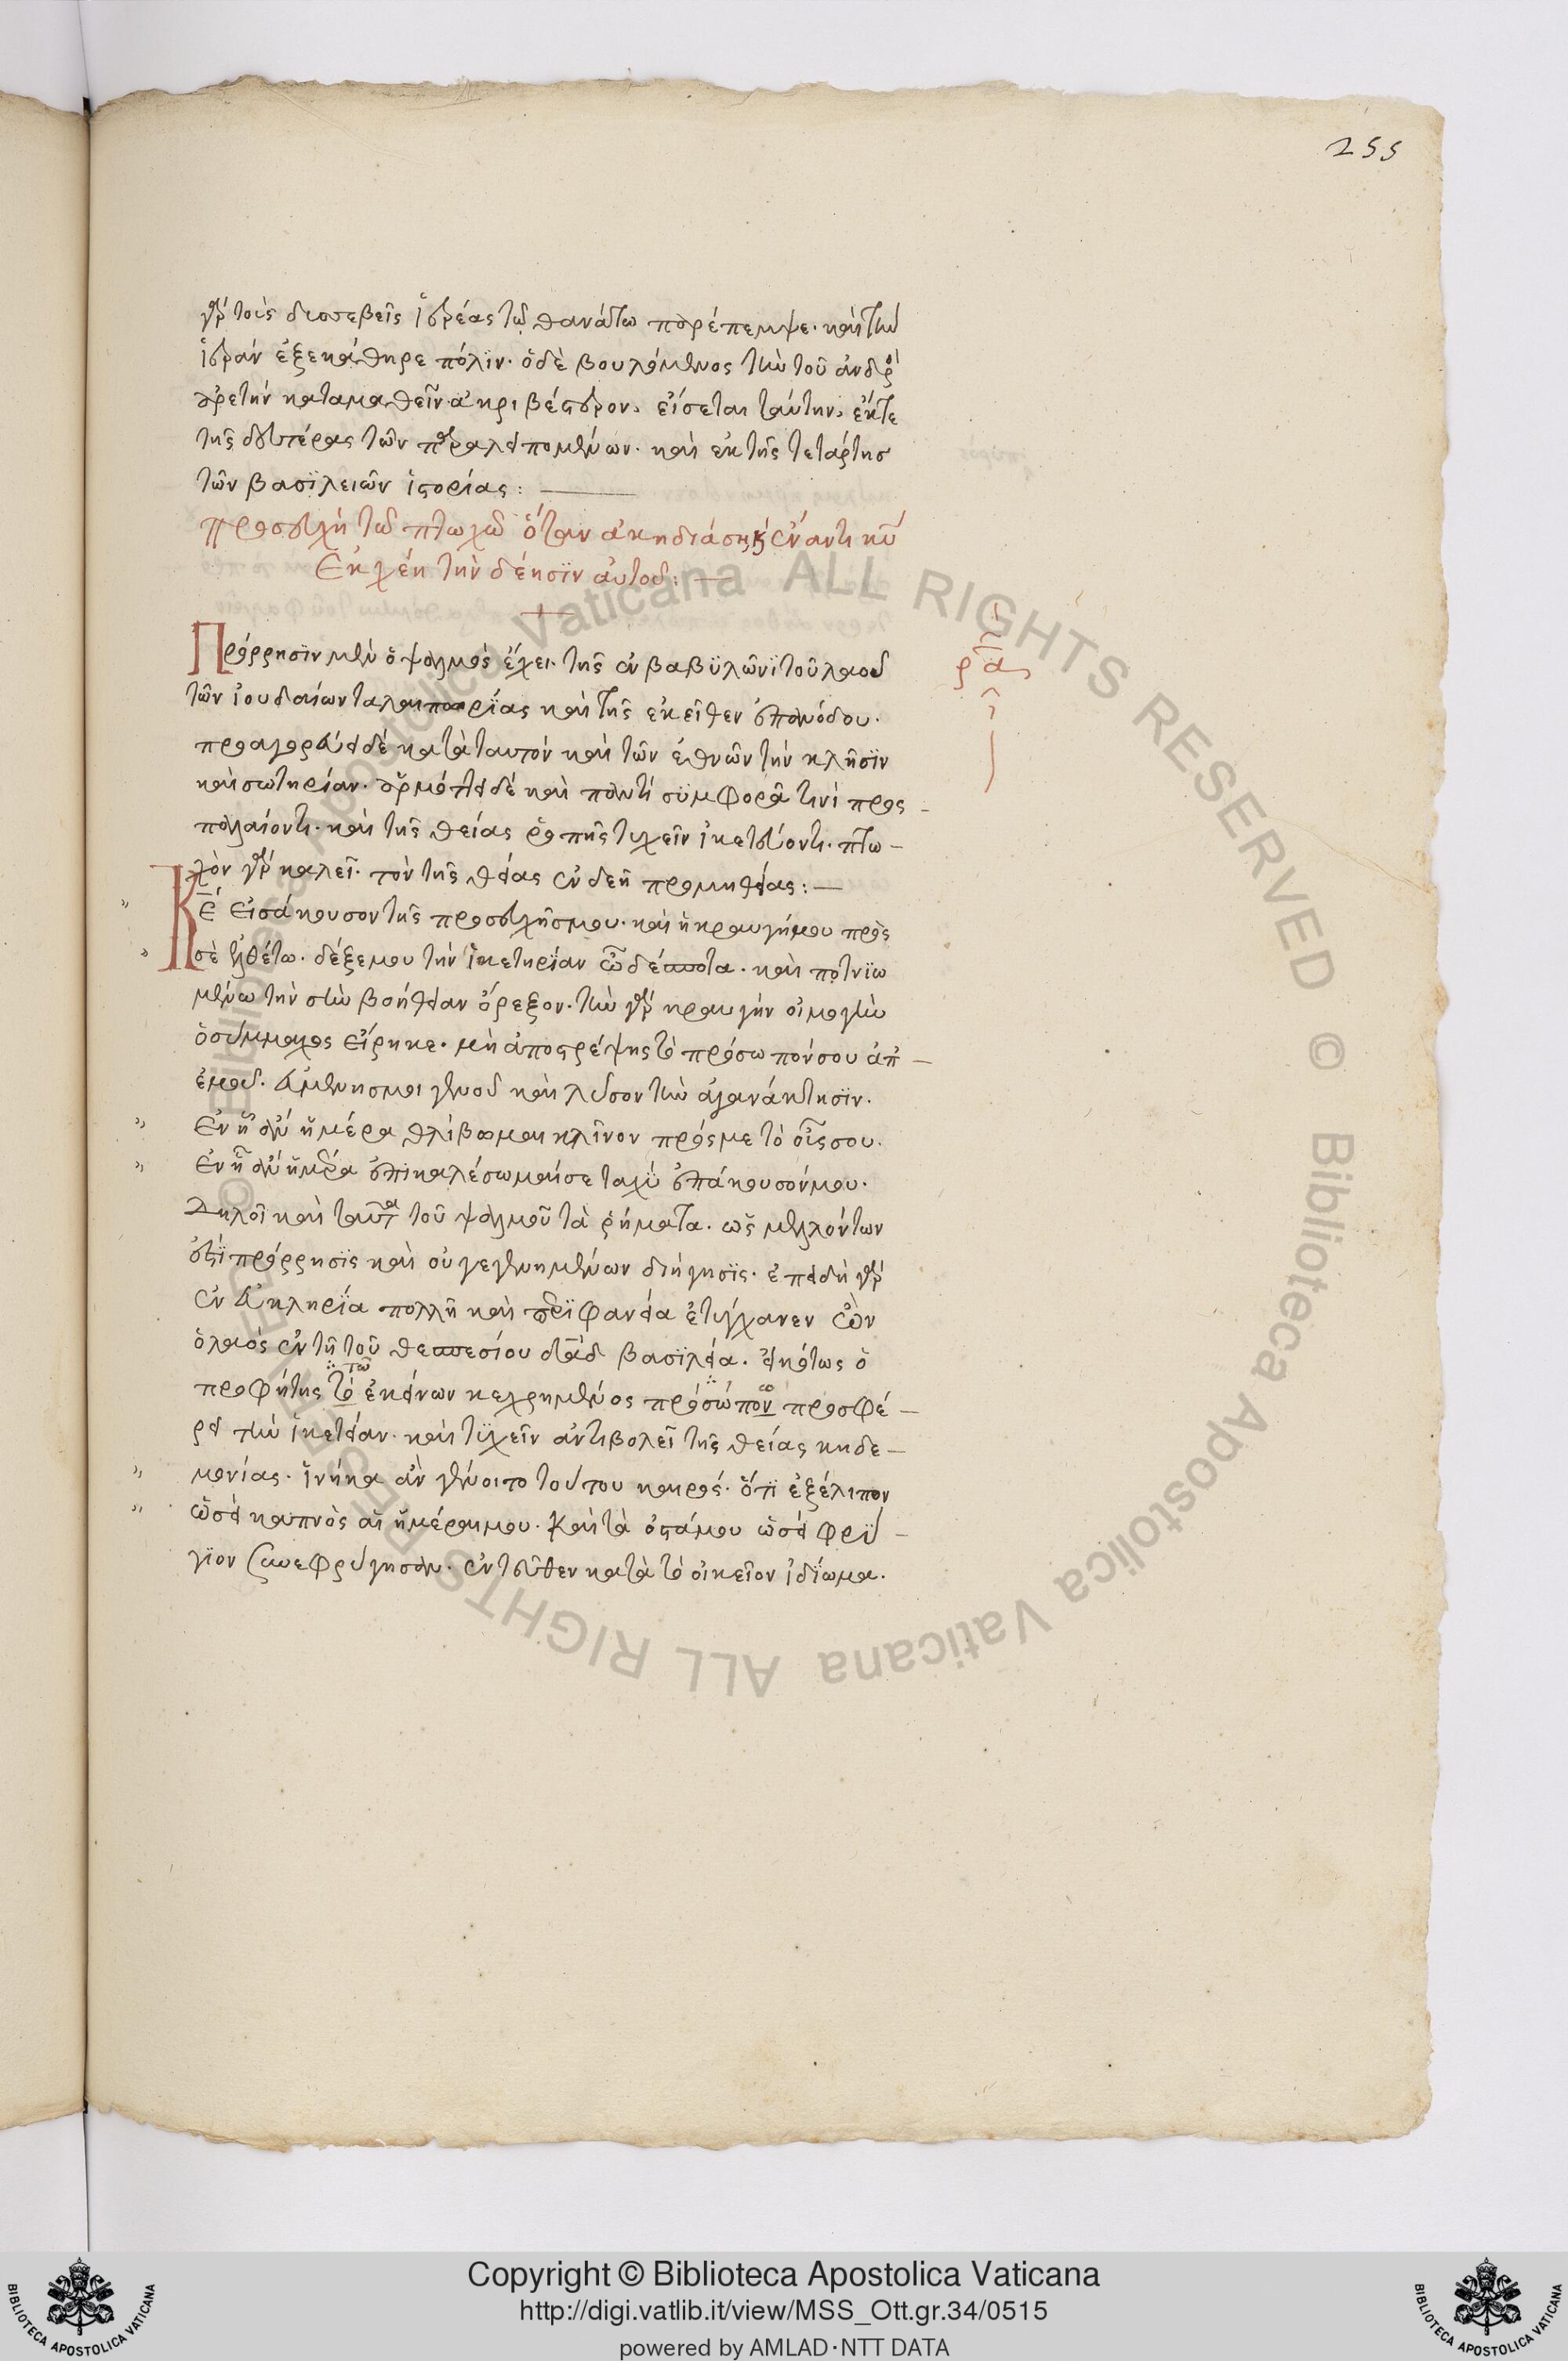 255
γὰρ τοῖς δυσσεβεῖς ἱερέας τῷ θανάτω παρέπεμψε. καὶ τὴν
ἱερὰν ἐξεκάθηρε πόλϊν. ὁ δὲ βουλόμενος τὴν τοῦ ἀνδρὸς
ἀρετὴν καταμαθεῖν ἀκριβέστερον, εἴσεται ταύτην, ἔκτε
τῆς δευτέρας τῶν παραλειπομένων. καὶ ἐκ τῆς τετάρτησ
τῶν βασϊλειῶν ἱστορίας: —
Προσευχὴ τῶ πτωχῶ ὅταν ἀκηδιάση, καὶ ἐναντι κυ
Ἐκχέη τὴν δέησϊν αὐτοῦ: —
Πρόρρησϊν μὲν ὁ ψαλμὸς ἔχει. τῆς ἐν βαβϋλῶνϊ τοῦ λαοῦ
ρα
τῶν ἰουδαίων ταλαιπορϊας καὶ τῆς ἐκεῖθεν ἐπανόδου.
προαγορεύει δὲ κατὰ ταυτὸν καὶ τῶν ἐθνῶν τὴν κλῆσϊν
καὶ σωτηρίαν. ἁρμόττει δὲ καὶ παντὶ σϋμφορᾶ τινὶ προς
παλαίοντι. καὶ τῆς θείας ῥοπῆς τυχεῖν ἱκετεύοντι. πτω
χὸν γὰρ καλεῖ. τὸν τῆς θείας ἐνδεῆ προμηθείας: —
Κε Εἰσάκουσον τῆς προσευχῆσ μου. καὶ ἡ κραυγή μου πρὸς
σὲ ἐλθέτω. δέξε μου τὴν ἱκετηρίαν ὦ δέσποτα. καὶ ποτνϊω
μένω τὴν σὴν βοήθειαν ὄρεξον. τὴν γὰρ κραυγὴν οἰμωγὴν
ὁ σύμμαχος εἴρηκε. μὴ ἀποστρέψης τὸ πρόσωπόν σου ἀπ
ἐμοῦ. εὐμένησμοι γενοῦ καὶ λῦσον τὴν ἀγανάκτησϊν.
Ἐν ἧ ἂν ἡμέρα θλίβωμαι κλῖνον πρός με τὸ οὖς σου.
Ἐν ἧ ἂν ἡμέρα ἐπικαλέσωμαί σε ταχὺ ἐπάκουσόν μου.
Δηλοῖ καὶ ταῦτα τοῦ ψαλμοῦ τὰ ῥήματα. ὡς μελλόντων
ἐστὶ πρόρρησϊς καὶ οὐ γεγενημένων διήγησϊς. ἐπειδὴ γὰρ
ἐν εὐκληρϊα πολλῆ καὶ περϊφανεία ἐτύγχανεν ὢν
ὁ λαὸς ἐν τῆ τοῦ θεσπεσίου δᾱδ βασϊλεία. εἰκότως ὁ
προφήτης τὸ τῶ ἐκείνων κεχρημένος πρόσώπον ω προσφέ
ρει τὴν ἱκετείαν. καὶ τϋχεῖν ἀντιβολεῖ τῆς θείας κηδε
μονίας. ἡνίκα ἂν γένοιτο τούτου καιρός. ὅτι ἐξέλιπον
ὡσεὶ καπνὸς αἱ ἡμέραι μου. Καὶ τὰ ὀστάμου ὡσεὶ φρύ
γϊον συνεφρύγησαν. ἐντεῦθεν κατὰ τὸ οἰκεῖον ἰδίωμα.
Copyright © Biblioteca Apostolica Vaticana
http://digi.vatlib.it/view/MSS_Ott.gr.34/0515
powered by AMLAD · NTT DATA